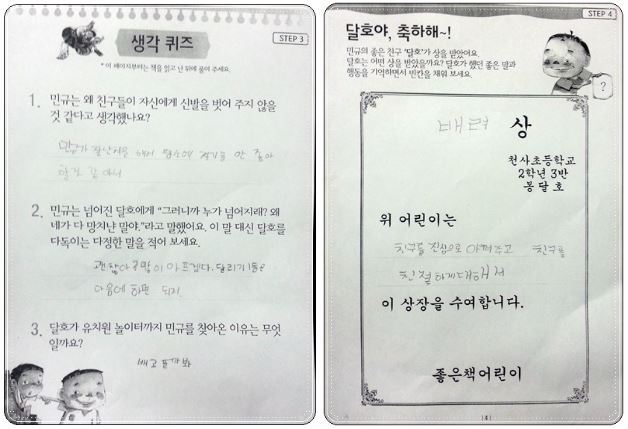 STEP 3
생각 퀴즈
* 이 페이지부터는 책을 읽고 난 뒤에 풀어 주세요.
1. 민규는 왜 친구들이 자신에게 신발을 벗어 주지 않을
것 같다고 생각했나요?
민규가 장난치를 해서 평소에 자기를 안 좋아
할 것 같아서
2. 민규는 넘어진 달호에게 “그러니까 누가 넘어지래? 왜
네가 다 망치냔 말야.”라고 말했어요. 이 말 대신 달호를
다독이는 다정한 말을 적어 보세요.
괜찮아? 많이 아프겠다. 달리기는
다음에 하면 되지.
3. 달호가 유치원 놀이터까지 민규를 찾아온 이유는 무엇
일까요?
배고플까봐
STEP 4
달호야, 축하해~!
민규의 좋은 친구 ‘달호’가 상을 받았어요.
달호는 어떤 상을 받았을까요? 달호가 했던 좋은 말과
행동을 기억하면서 빈칸을 채워 보세요.
?
배려 상
천사초등학교
2학년 3반
봉달호
위 어린이는
친구를 진심으로 아껴주고 친구를
친절하게대해서
이 상장을 수여합니다.
좋은책어린이
4